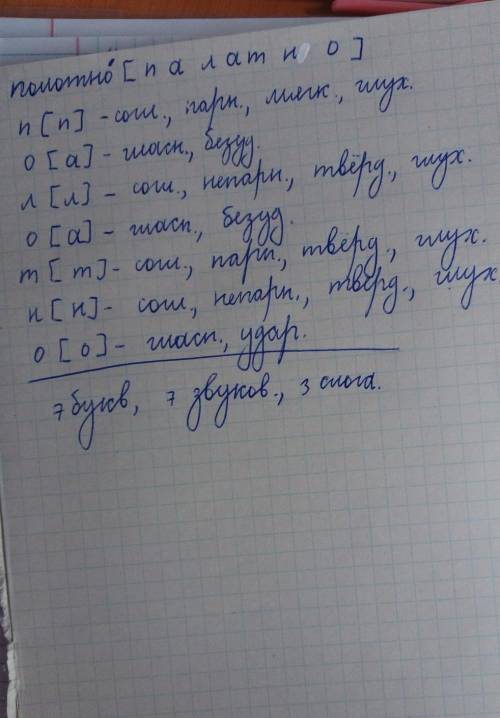 полотно́ [п а л а т н о]
п [п] - согл., парн., мягк., глух.
о [а] - гласн., безуд.
л [л] - согл., непарн., твёрд., глух.
о [а] - гласн., безуд.
т [т] - согл., парн., твёрд., глух.
н [н] - согл., непарн., твёрд., глух
о [о] - гласн., удар.
7 букв, 7 звуков., 3 слога.